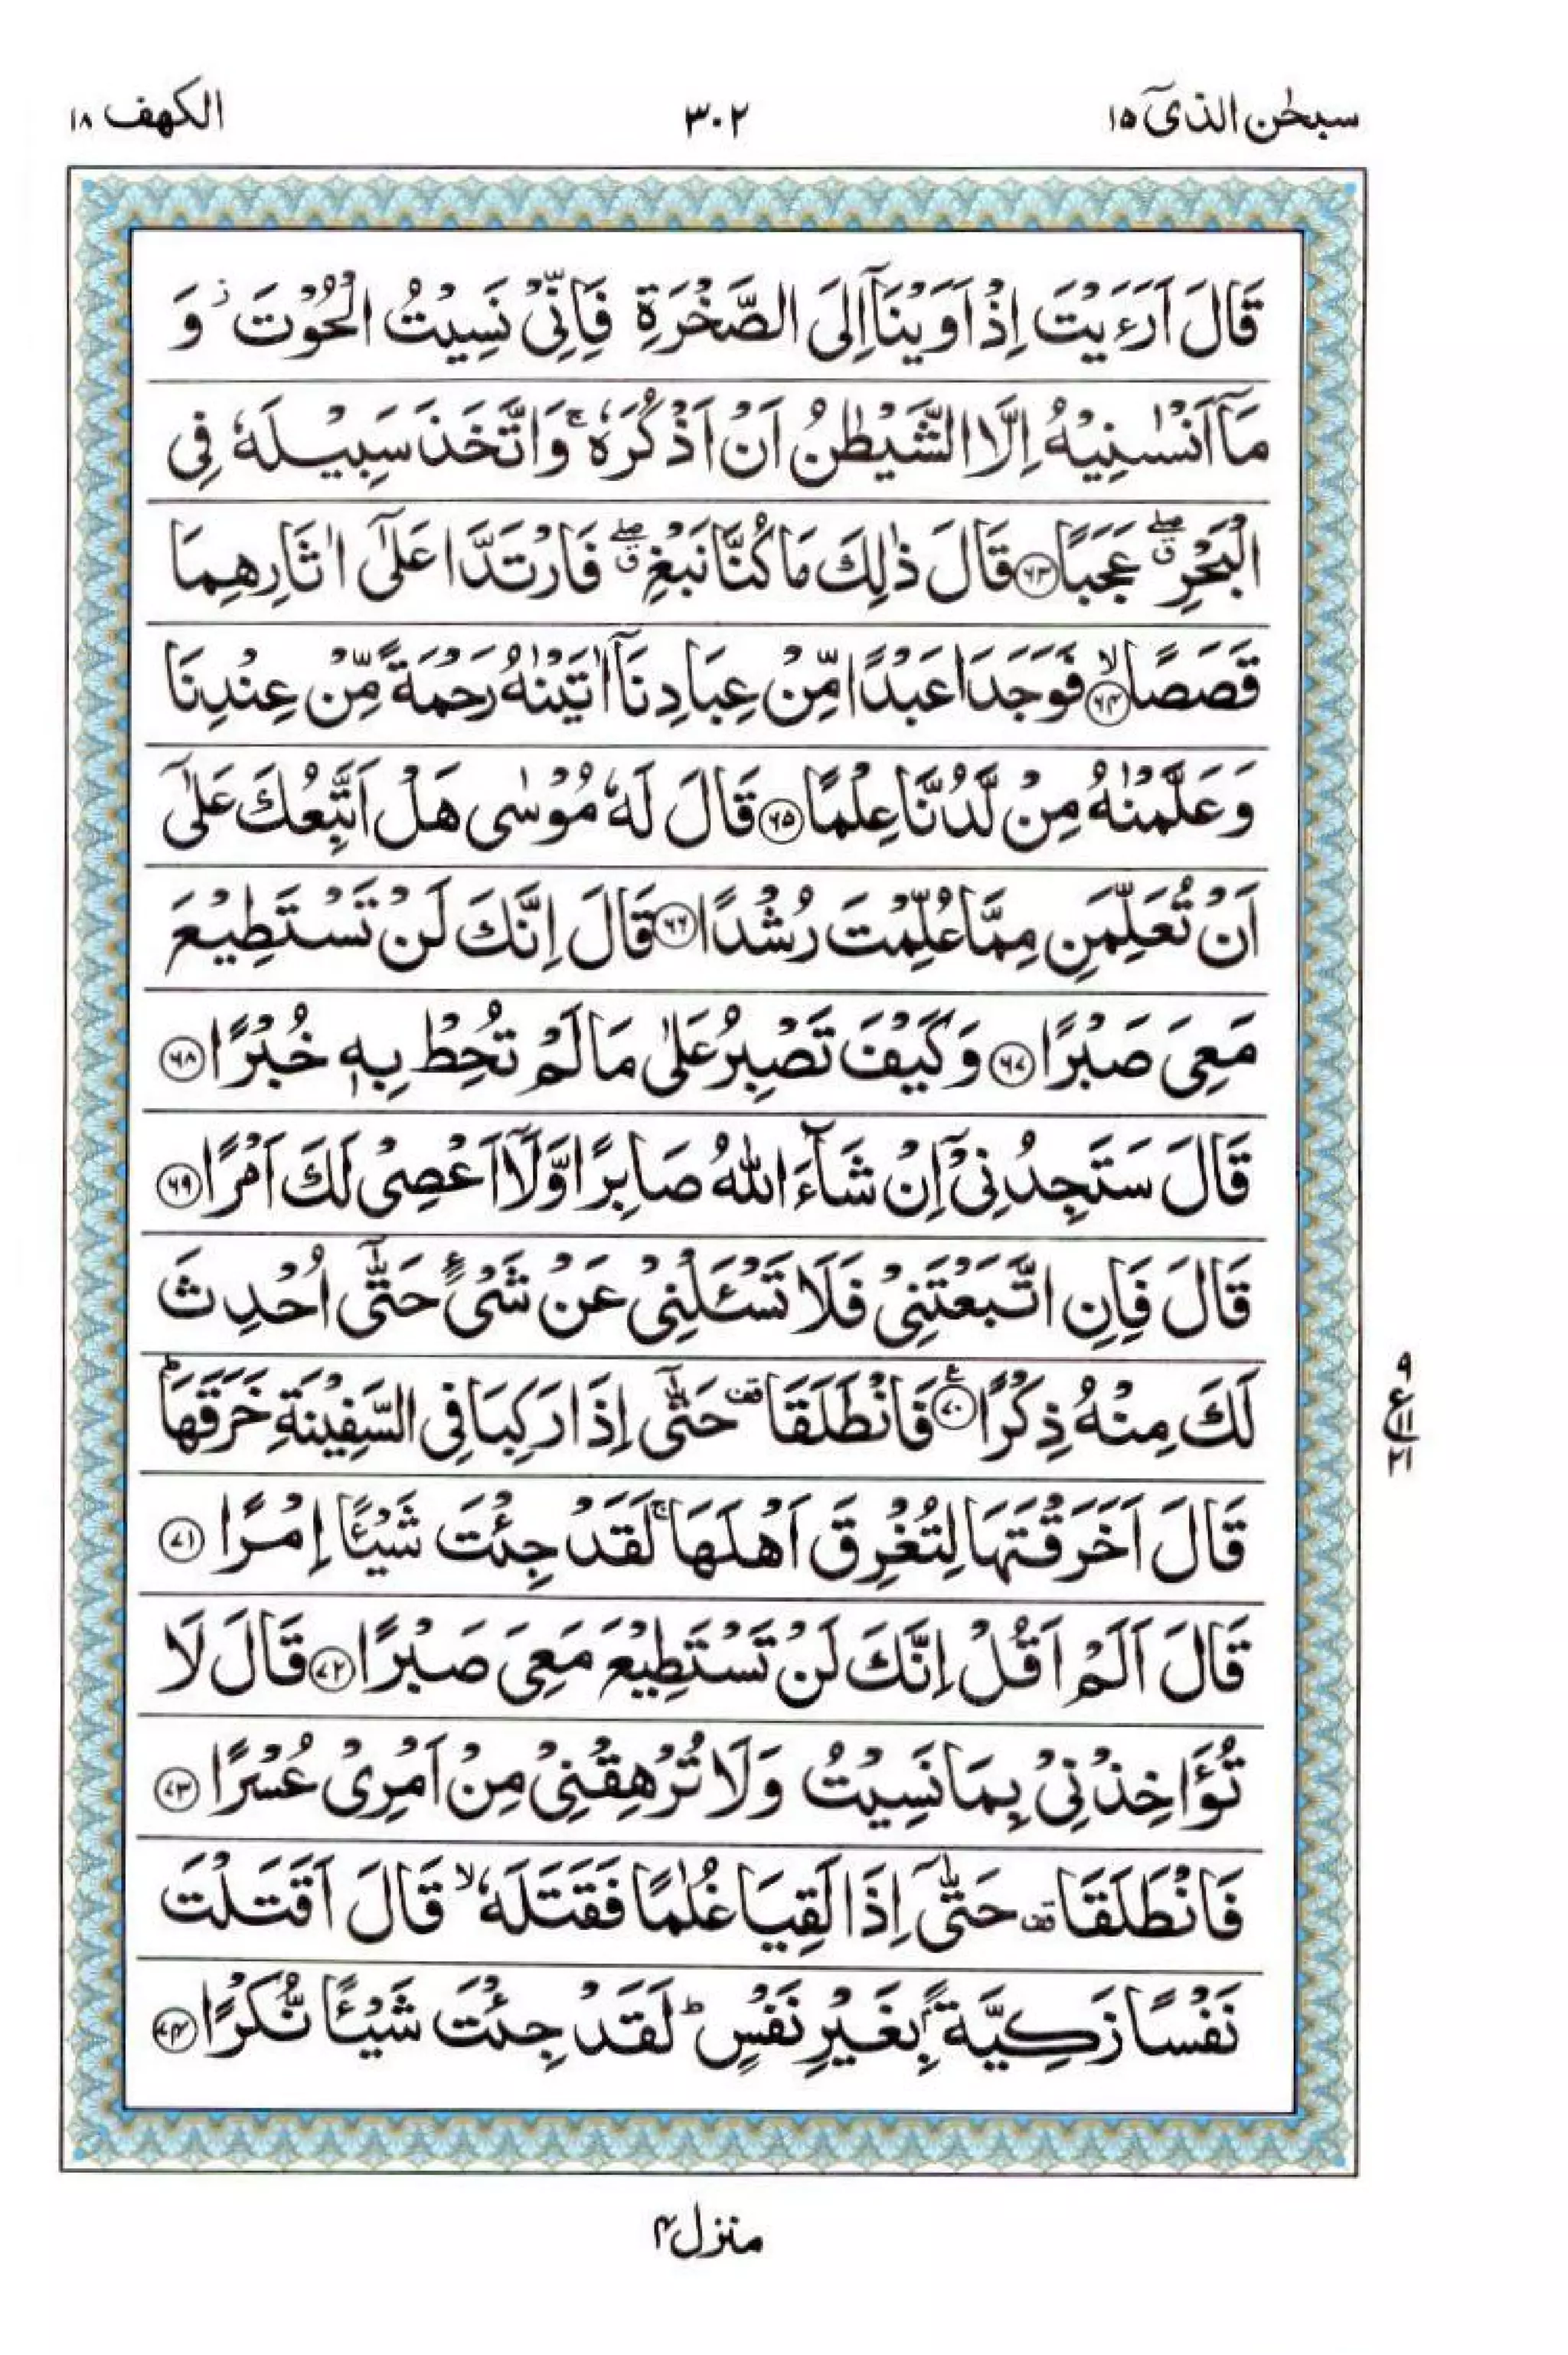 سبحٰن الذیٓ ۱۵
۳۰۲
الکهف ۱۸
قَالَ اَرَءَیْتَ اِذْ اَوَیْنَاۤ اِلَی الصَّخْرَةِ فَاِنِّیْ نَسِیْتُ الْحُوْتَ ؗ وَ
مَاۤ اَنْسٰىنِیْهُ اِلَّا الشَّیْطٰنُ اَنْ اَذْكُرَهٗ ۚ وَاتَّخَذَ سَبِیْلَهٗ فِی
الْبَحْرِ ۖق عَجَبًا ﴿۶۳﴾ قَالَ ذٰلِكَ مَا كُنَّا نَبْغِ ۖق فَارْتَدَّا عَلٰۤی اٰثَارِهِمَا
قَصَصًا ۙ﴿۶۴﴾ فَوَجَدَا عَبْدًا مِّنْ عِبَادِنَاۤ اٰتَیْنٰهُ رَحْمَةً مِّنْ عِنْدِنَا
وَعَلَّمْنٰهُ مِنْ لَّدُنَّا عِلْمًا ﴿۶۵﴾ قَالَ لَهٗ مُوْسٰی هَلْ اَتَّبِعُكَ عَلٰۤی
اَنْ تُعَلِّمَنِ مِمَّا عُلِّمْتَ رُشْدًا ﴿۶۶﴾ قَالَ اِنَّكَ لَنْ تَسْتَطِیْعَ
مَعِیَ صَبْرًا ﴿۶۷﴾ وَكَیْفَ تَصْبِرُ عَلٰی مَا لَمْ تُحِطْ بِهٖ خُبْرًا ﴿۶۸﴾
قَالَ سَتَجِدُنِیْۤ اِنْ شَآءَ اللّٰهُ صَابِرًا وَّلَاۤ اَعْصِیْ لَكَ اَمْرًا ﴿۶۹﴾
قَالَ فَاِنِ اتَّبَعْتَنِیْ فَلَا تَسْـَٔلْنِیْ عَنْ شَیْءٍ حَتّٰۤی اُحْدِثَ
لَكَ مِنْهُ ذِكْرًا ﴿۷۰﴾ ع فَانْطَلَقَا وقفة حَتّٰۤی اِذَا رَكِبَا فِی السَّفِیْنَةِ خَرَقَهَا ؕ
قَالَ اَخَرَقْتَهَا لِتُغْرِقَ اَهْلَهَا ۚ لَقَدْ جِئْتَ شَیْـًٔا اِمْرًا ﴿۷۱﴾
قَالَ اَلَمْ اَقُلْ اِنَّكَ لَنْ تَسْتَطِیْعَ مَعِیَ صَبْرًا ﴿۷۲﴾ قَالَ لَا
تُؤَاخِذْنِیْ بِمَا نَسِیْتُ وَلَا تُرْهِقْنِیْ مِنْ اَمْرِیْ عُسْرًا ﴿۷۳﴾
فَانْطَلَقَا وقفة حَتّٰۤی اِذَا لَقِیَا غُلٰمًا فَقَتَلَهٗ ۙ قَالَ اَقَتَلْتَ
نَفْسًا زَكِیَّةًۢ بِغَیْرِ نَفْسٍ ؕ لَقَدْ جِئْتَ شَیْـًٔا نُّكْرًا ﴿۷۴﴾
۹
ع ۱۱
۲۱
منزل ۴